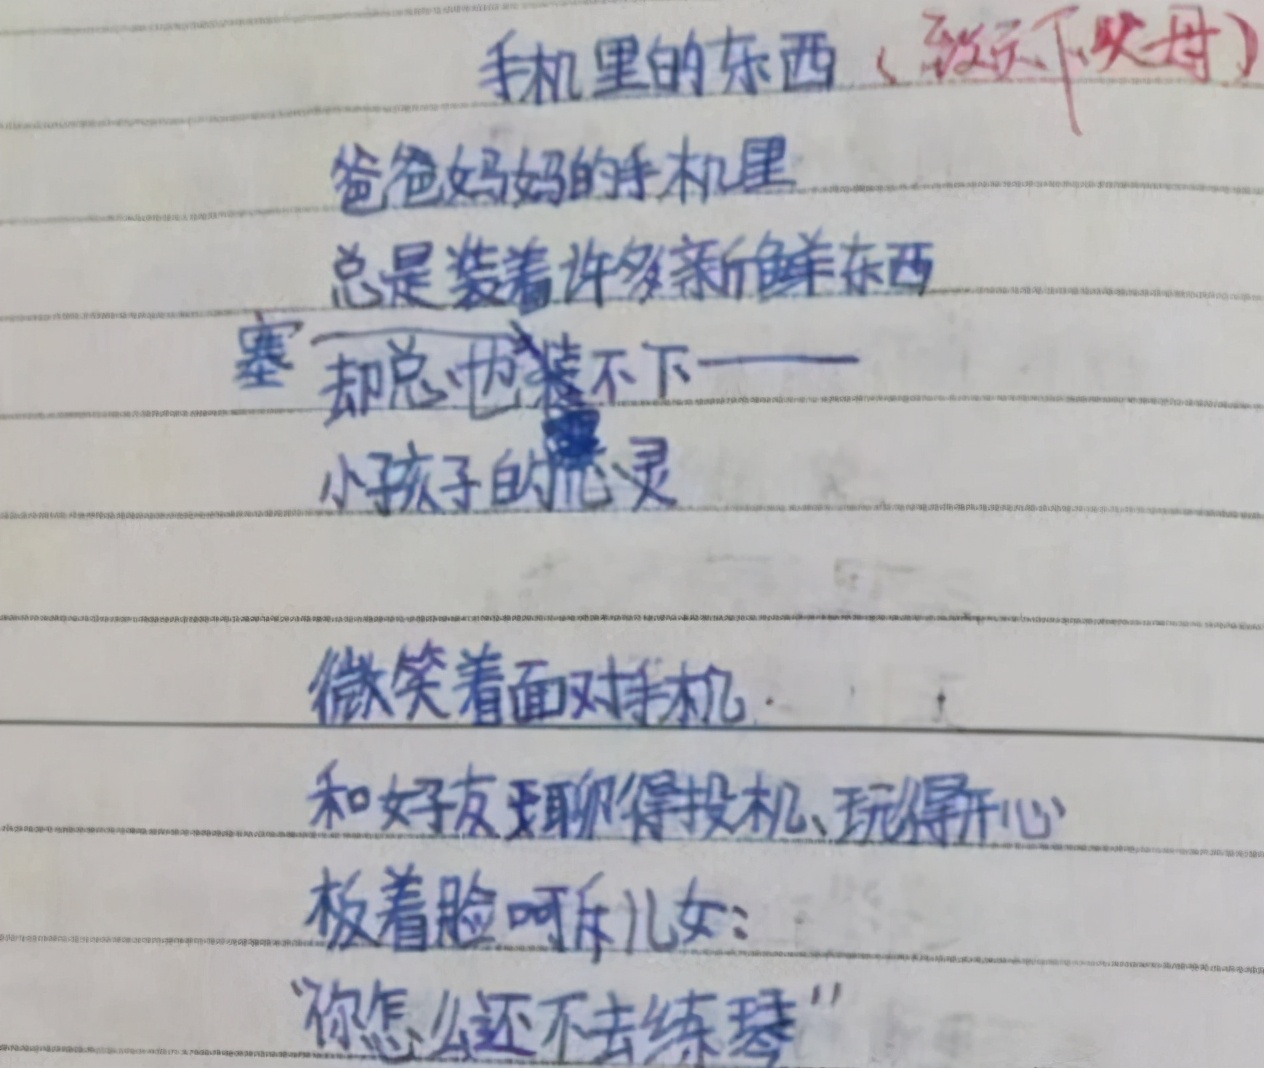 手机里的东西（致天下父母）
爸爸妈妈的手机里
总是装着许多新鲜东西
塞
却总也装不下——
小孩子的心灵
微笑着面对手机
和好友聊得投机、玩得开心
板着脸呵斥儿女：
“你怎么还不去练琴”